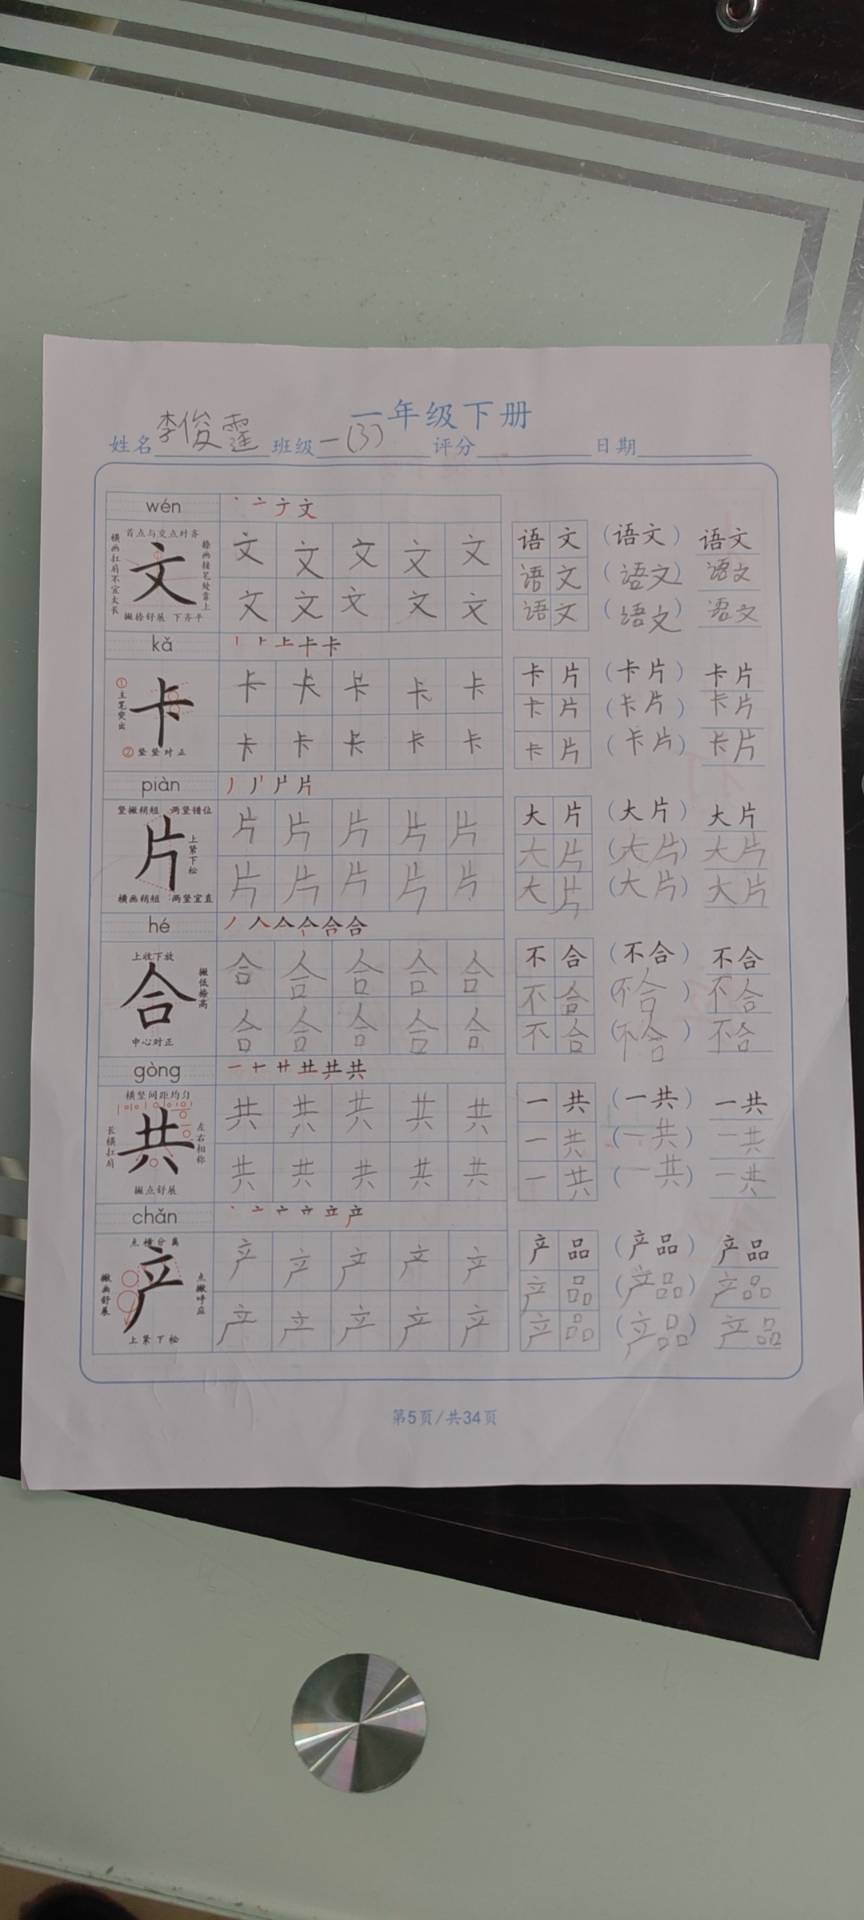 一年级下册
姓名 李俊霆 班级 一(3) 评分 日期
wén
丶 亠 ナ 文
首点与交点对齐
横画扛肩不宜太长
文
捺画接笔处靠上
撇捺舒展 下齐平
文 文 文 文 文
文 文 文 文 文
语文 (语文) 语文
语文 (语文) 语文
语文 (语文) 语文
kǎ
丨 卜 上 卡 卡
①主笔突出
卡
②竖竖对正
卡 卡 卡 卡 卡
卡 卡 卡 卡 卡
卡片 (卡片) 卡片
卡片 (卡片) 卡片
卡片 (卡片) 卡片
piàn
竖撇稍短 两竖错位
片
上紧下松
横画稍短 两竖宜直
片 片 片 片 片
片 片 片 片 片
大片 (大片) 大片
大片 (大片) 大片
大片 (大片) 大片
hé
上收下放
合
撇低捺高
中心对正
合 合 合 合 合
合 合 合 合 合
不合 (不合) 不合
不合 (不合) 不合
不合 (不合) 不合
gòng
横竖间距均匀
长横扛肩
共
左右相称
撇点舒展
共 共 共 共 共
共 共 共 共 共
一共 (一共) 一共
一共 (一共) 一共
一共 (一共) 一共
chǎn
点横分离
撇画舒展
产
点撇呼应
上紧下松
产 产 产 产 产
产 产 产 产 产
产品 (产品) 产品
产品 (产品) 产品
产品 (产品) 产品
第5页/共34页